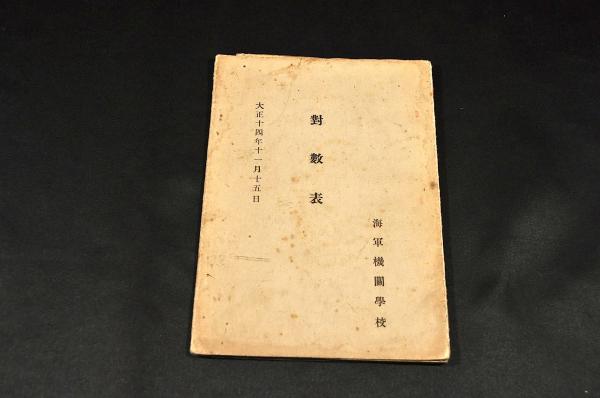 海軍機關學校
對數表
大正十四年十一月十五日